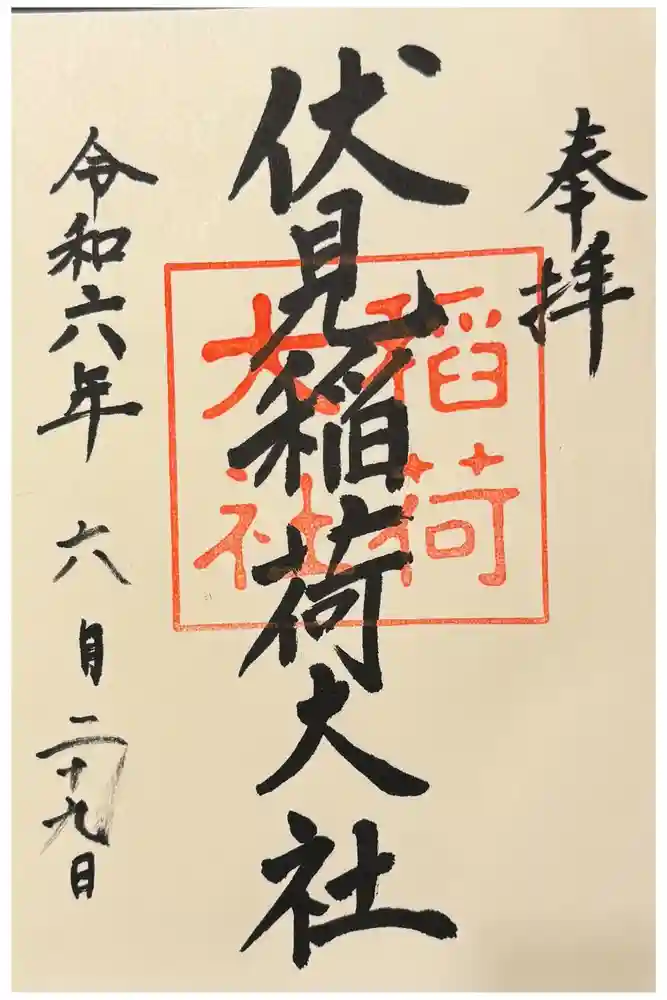 奉拝
伏見稲荷大社
稲荷
大社
令和六年 六月二十九日